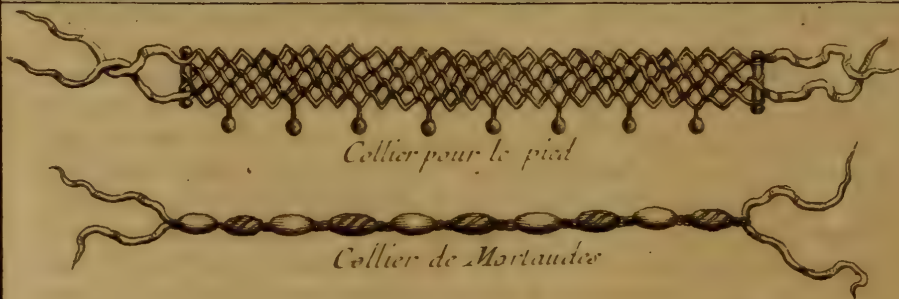 Collier pour le pied
Collier de Mortaudes